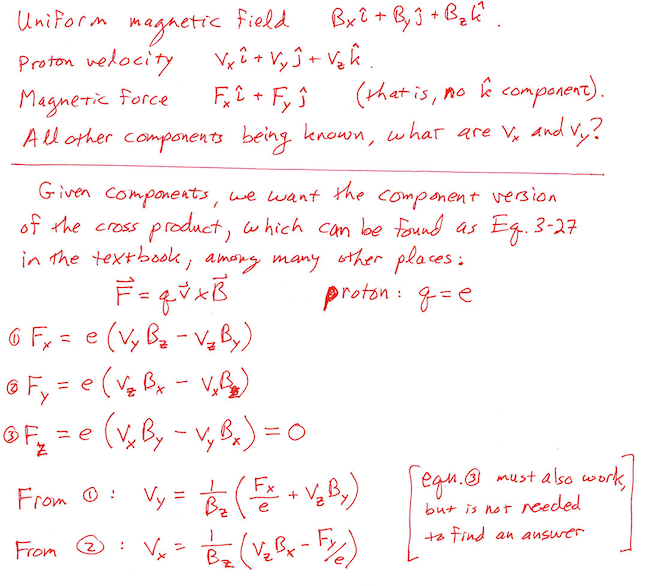 Uniform magnetic field Bₓî + B_yĵ + B_zk̂.
Proton velocity Vₓî + V_yĵ + V_zk̂.
Magnetic force Fₓî + F_yĵ (that is, no k̂ component).
All other components being known, what are Vₓ and V_y?
Given components, we want the component version
of the cross product, which can be found as Eq. 3-27
in the textbook, among many other places:
F⃗ = q v⃗ × B⃗ proton: q = e
① Fₓ = e (V_y B_z − V_z B_y)
② F_y = e (V_z Bₓ − Vₓ B_z)
③ F_z = e (Vₓ B_y − V_y Bₓ) = 0
From ①: V_y = 1/B_z (Fₓ/e + V_z B_y)
From ②: Vₓ = 1/B_z (V_z Bₓ − F_y/e)
[eqn. ③ must also work,
but is not needed
to find an answer]